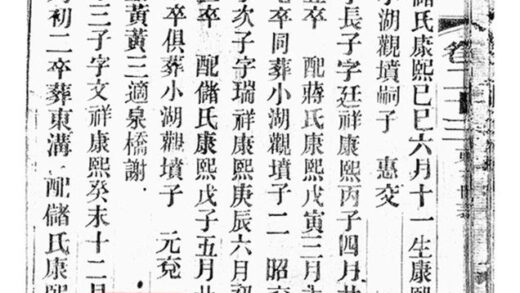 儲氏康熙己巳六月十一生康熙
小湖觀墳嗣子 惠交
長子字廷祥康熙丙子四月廿
卒 配蔣氏康熙戊寅三月
卒同葬小湖觀墳子二 昭
次子字瑞祥康熙庚辰六月初
卒 配儲氏康熙戊子五月廿
卒俱葬小湖觀墳子 元兗
黃黃三適泉橋謝
三子字文祥康熙癸未十二月
初二卒葬東溝 配儲氏康熙